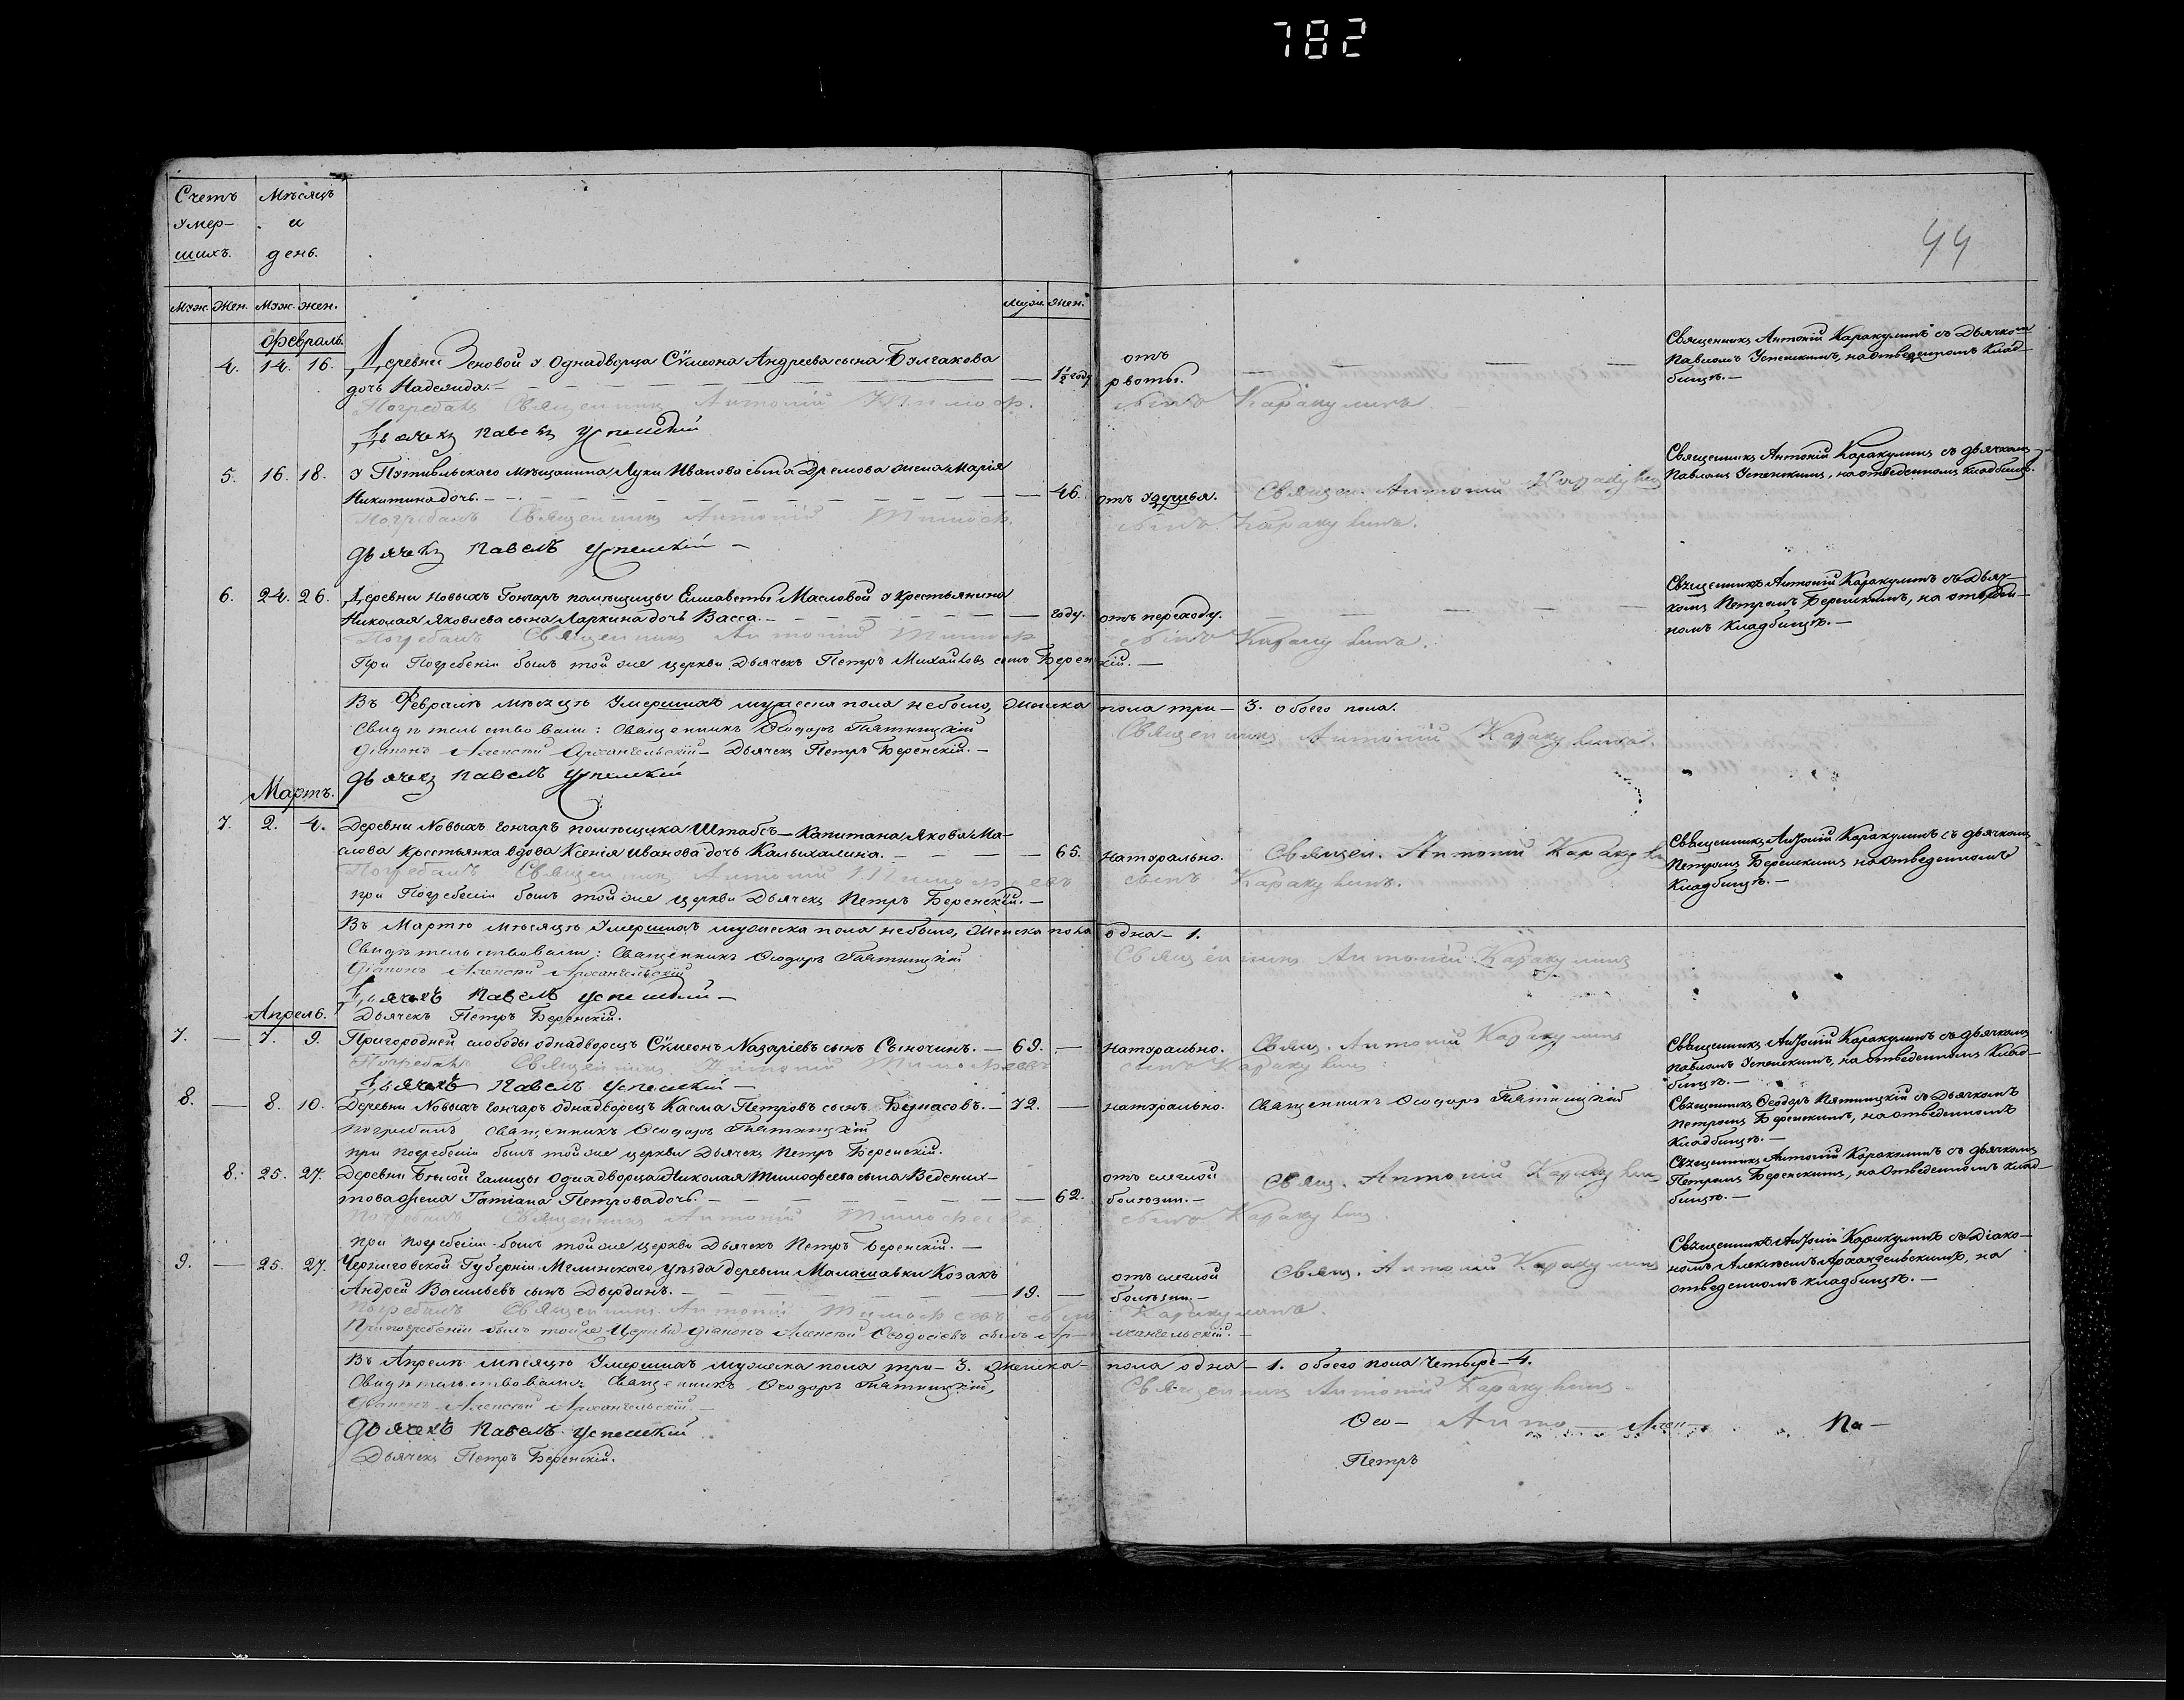 782
44
Счетъ
умер-
шихъ.
Мѣсяцъ
и
день.
Муж. Жен. Муж. жен.
Муж. Жен.
Февраль.
4. 14. 16. Деревни Зеновой у Однадворца Сѵмеона Андреева сына Булгакова
дочь Надежда. — 1½ году
отъ
рвоты.
Священникъ Антоній Каракулинъ съ Дьячком
Павломъ Успенскимъ, на отведенномъ клад-
бищѣ. —
Погребалъ Священникъ Антоній Тимоф.
сынъ Каракулинъ
Дьячекъ Павелъ Успенскій
5. 16. 18. У Путивльскаго мѣщанина Луки Иванова сына Дремова жена Марія
Никитина дочь. — 46. отъ удушья. Священ. Антоній Каракулин
Священникъ Антоній Каракулинъ съ дьячкомъ
Павломъ Успенскимъ, на отведенномъ кладбищѣ.
Погребалъ Священникъ Антоній Тимоф.
сынъ Каракулинъ.
Дьячекъ Павелъ Успенскій —
6. 24. 26. Деревни Новыхъ Гончаръ помѣщицы Елисаветы Масловой у крестьянина
Николая Яковлева сына Ларкина дочь Васса. — году. отъ переходу.
Священникъ Антоній Каракулинъ съ Дьяч-
комъ Петромъ Беренскимъ, на отведен-
номъ кладбищѣ. —
Погребалъ Священникъ Антоній Тимоф
сынъ Каракулинъ.
При Погребеніи былъ той же церкви Дьячекъ Петръ Михайловъ сынъ Беренскій. —
Въ Февралѣ мѣсяцѣ умершихъ мужеска пола небыло, Женска пола три — 3. обоего пола.
Свидѣтельствовали: Священникъ Ѳеодоръ Пятницкій
Священникъ Антоній Каракулинъ.
Діаконъ Алексѣй Архангельскій — Дьячекъ Петръ Беренскій. —
Дьячекъ Павелъ Успенскій
Мартъ.
7. 2. 4. Деревни Новыхъ Гончаръ помѣщика Штабсъ-Капитана Якова Ма-
слова Крестьянка вдова Ксенія Иванова дочь Калыхалина. — 65. натурально. Священ. Антоній Каракули
Священникъ Антоній Каракулинъ съ дьячкомъ
Петромъ Беренскимъ на отведенномъ
кладбищѣ. —
Погребалъ Священникъ Антоній Тимофеевъ
сынъ Каракулинъ.
при Погребеніи былъ той же церкви Дьячекъ Петръ Беренскій. —
Въ Мартѣ мѣсяцѣ умершихъ мужеска пола небыло, Женска пола одна — 1.
Свидѣтельствовали: Священникъ Ѳеодоръ Пятницкій
Священникъ Антоній Каракулинъ
Діаконъ Алексѣй Архангельскій
Дьячекъ Павелъ Успенскій —
Дьячекъ Петръ Беренскій.
Апрель.
7. — 7. 9. Пригородней слободы однадворецъ Сѵмеонъ Назаріевъ сынъ Сыночинъ. — 69. — натурально. Свящ. Антоній Каракулинъ
Священникъ Антоній Каракулинъ съ дьячкомъ
Павломъ Успенскимъ, на отведенномъ клад-
бищѣ. —
Погребалъ Священникъ Антоній Тимофеевъ
сынъ Каракулинъ
Дьячекъ Павелъ Успенскій —
8. — 8. 10. Деревни Новыхъ Гончаръ однадворецъ Касма Петровъ сынъ — 72. — натурально. Священникъ Ѳеодоръ Пятницкій
Священникъ Ѳеодоръ Пятницкій съ Дьячкомъ
Петромъ Беренскимъ, на отведенномъ
кладбищѣ. —
Погребалъ Священникъ Ѳеодоръ Пятницкій
при погребеніи былъ той же церкви Дьячекъ Петръ Беренскій.
8. 25. 27. Деревни Бѣлой Галицы Однадворца Николая Тимофеева сына Ведених-
това жена Татіана Петрова дочь. — 62.
отъ слеглой
болѣзни. —
Свящ. Антоній Каракулин
Священникъ Антоній Каракулинъ съ дьячкомъ
Петромъ Беренскимъ, на отведенномъ клад-
бищѣ. —
Погребалъ Священникъ Антоній Тимофеевъ
сынъ Каракулинъ.
при погребеніи былъ той же церкви Дьячекъ Петръ Беренскій. —
9. — 25. 27. Черниговской Губерніи Мглинскаго уѣзда деревни Малашавки Козакъ
Андрей Васильевъ сынъ Дырдинъ. — 19. —
отъ слеглой
болѣзни. —
Свящ. Антоній Каракулинъ
Священникъ Антоній Каракулинъ съ Діако-
номъ Алексѣемъ Архангельскимъ, на
отведенномъ кладбищѣ. —
Погребалъ Священникъ Антоній Тимофеевъ сынъ Каракулинъ.
При погребеніи былъ тойже Церкви Діаконъ Алексѣй Ѳеодосіевъ сынъ Архангельскій. —
Въ Апрелѣ мѣсяцѣ Умершихъ мужеска пола три — 3. Женска — пола одна — 1. обоего пола четыре — 4.
Свидѣтельствовали: Священникъ Ѳеодоръ Пятницкій,
Священникъ Антоній Каракулинъ.
Діаконъ Алексѣй Архангельскій. —
Дьячекъ Павелъ Успенскій
Дьячекъ Петръ Беренскій.
Ѳео — Анто — Алек — Па —
Петръ